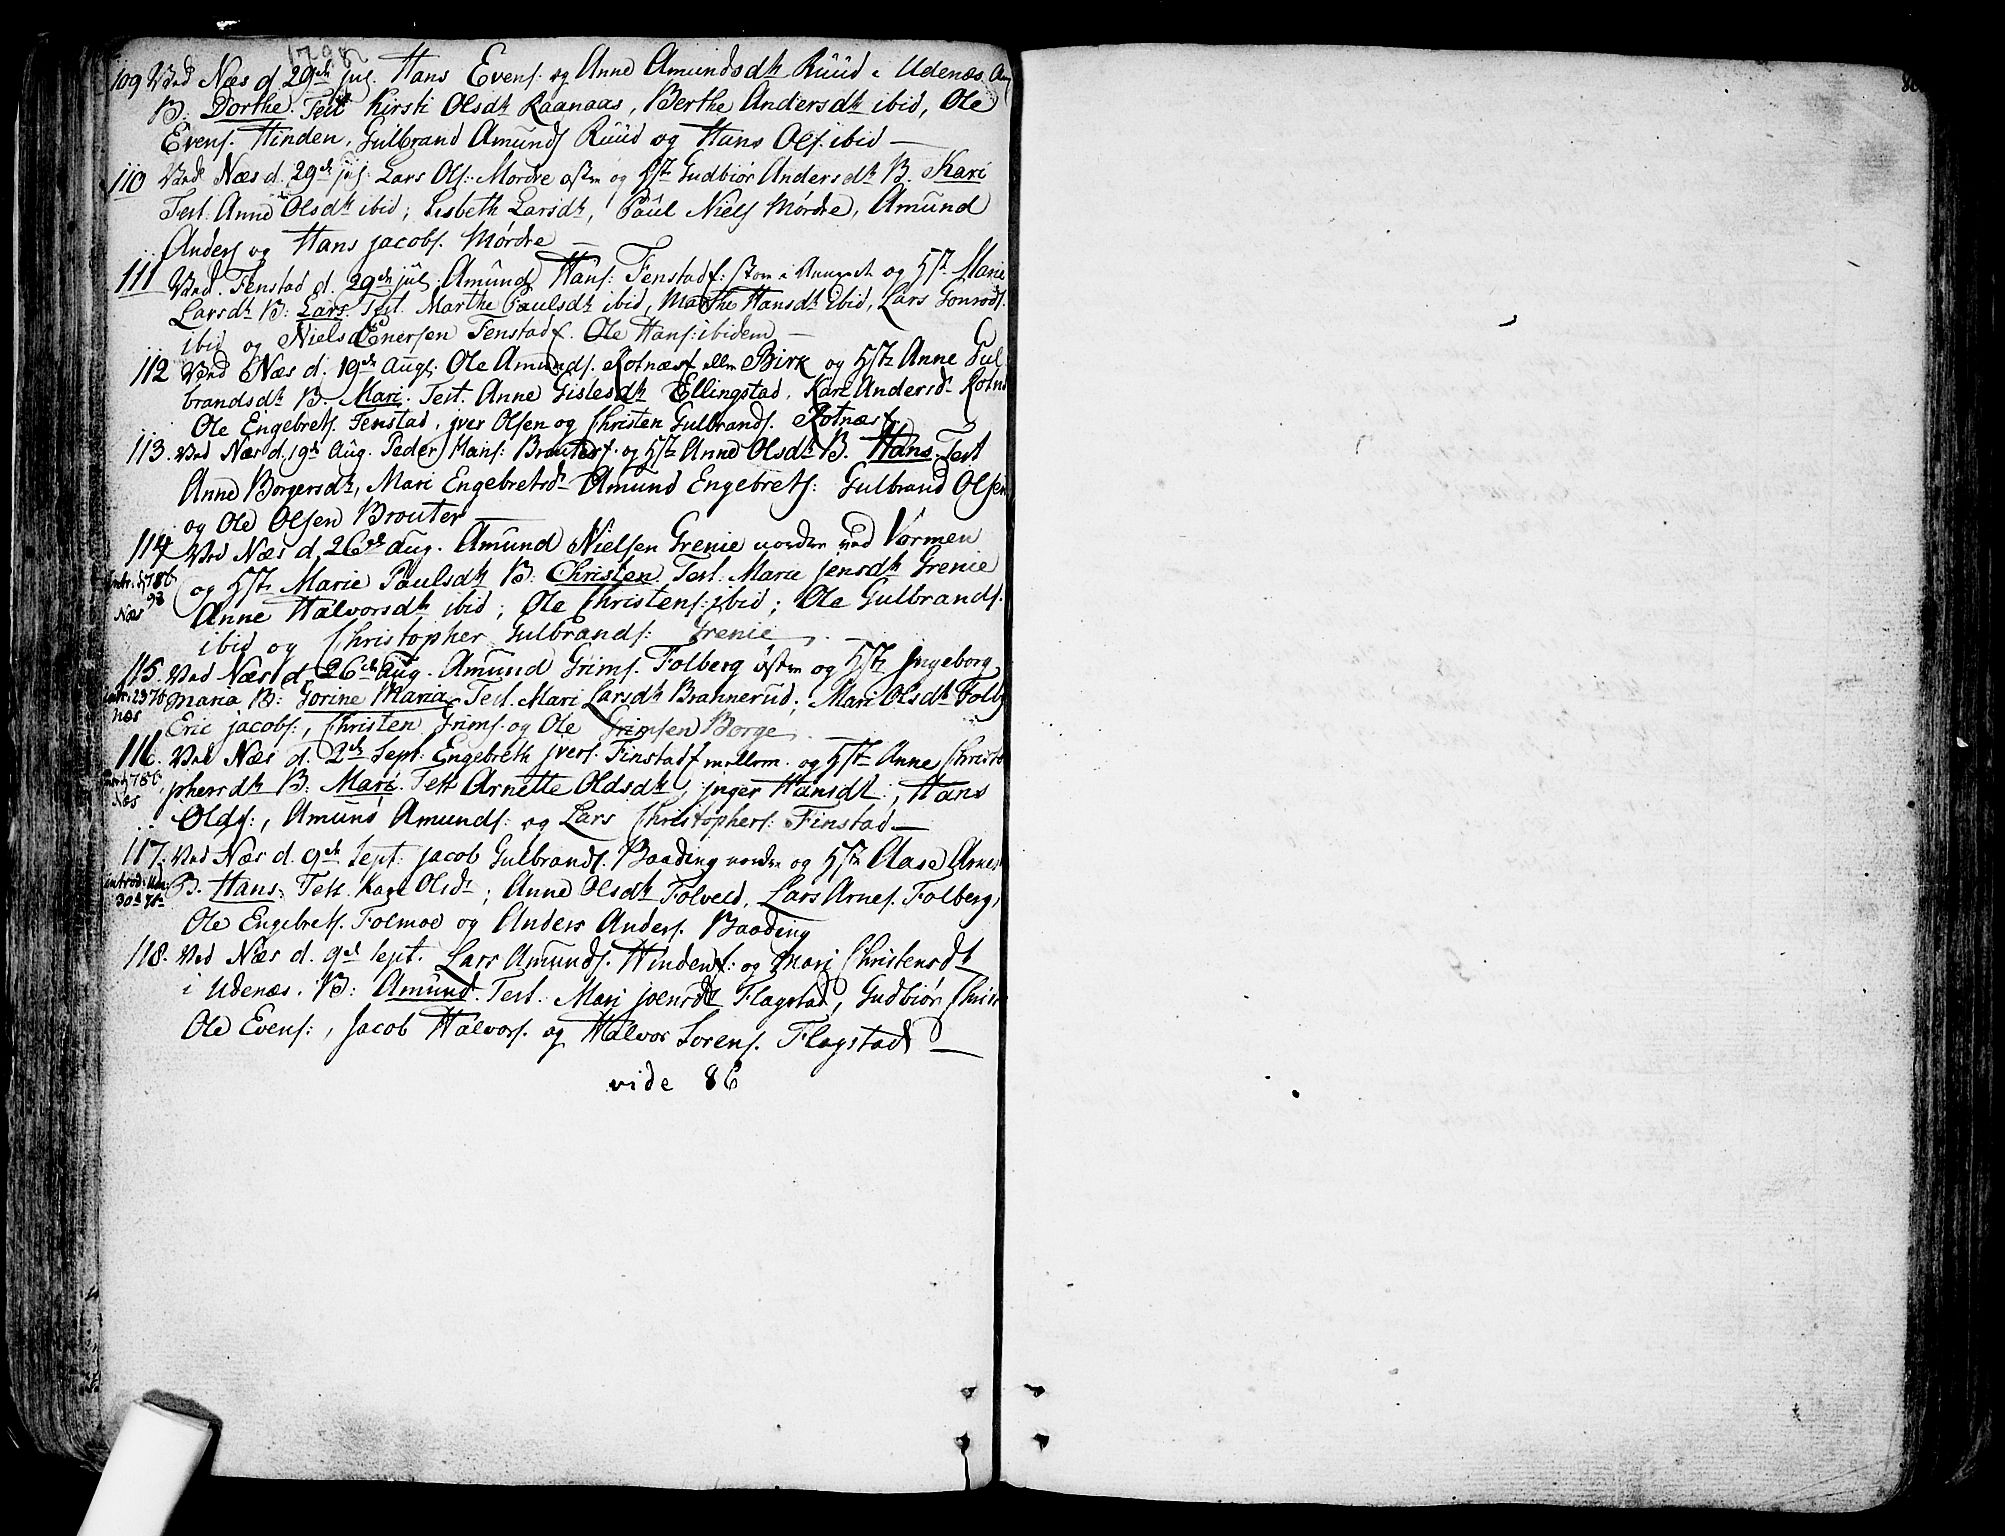 1798
109 Ved Næs d. 29de jul. Hans Evens: og Anne Amundsdtr Ruud i Udenæs
B: Dorthe. Test Kirsti Olsdtr Raanaas, Berthe Andersdtr ibid, Ole
Evens. Hinden, Gulbrand Amunds Ruud og Hans Ols. ibid —
110 Ved Næs d. 29de jul: Lars Ols: Mordre østen og Hst: Gudbiør Andersdtr B. Kari
Test: Anne Olsdtr ibid; Lisbeth Larsdtr, Paul Niels Mórdre, Amund
Anders og Hans jacobs. Mórdre —
111 Ved. Fenstad d. 29de jul Amund Hans: Fenstad og Hst: Marie
Larsdtr B: Lars. Test. Marthe Paulsdtr ibid, Marthe Hansdtr ibid, Lars
ibid og Niels Enersen Fenstad Ole Hans: ibidem —
112 Ved Næs d. 19de Augs: Ole Amunds. Rotnæs Birk og Hst: Anne Gul
brandsdtr B. Mari. Test. Anne Gislesdtr Ellingstad. Kari Andersdr Rotn
Ole Engebrets. Fenstad, jver Olsen og Christen Gulbrands. Rotnæs
113. Ved Næs d. 19de Aug. Peder Hans: Brouter og Hst: Anne Olsdtr B. Hans. Test
Anne Borgersdtr, Mari Engebretsdr Amund Engebrets: Gulbrand Olsen
og Ole Olsen Brouter
114 Ved Næs d. 26de aug. Amund Nielsen Grenie norden ved Vormen
og Hst: Marie Paulsdtr B: Christen. Test: Marie jensdtr Grenie
98
Næs
Anne Halvorsdtr ibid; Ole Christens: ibid; Ole Gulbrands.
ibid og Christopher Gulbrands: Grenie.
115. Ved Næs d. 26de Aug. Amund Grims. Folberg østen og Hst: Jngeborg
næs
Maria B: Gorine Maria. Test. Mari Larsdtr Brannerud; Mari Olsdtr Folb
Eric jacobs:, Christen Grims: og Ole Grimsen Borge.
116. Ved Næs d. 2de Sept: Engebreth jvers. Finstad mellem. og Hst: Anne Christo
Næs
phersdtr B: Mari. Test Arnette Oldsdtr; jnger Hansdtr:, Hans
Olds:, Amund Amunds: og Lars Christophers: Finstad —
117. Ved Næs d. 9de Sept: jacob Gulbrands. Baading norden og Hst: Aase Arnes
introd:
B. Hans: Test. Kari Olsdr; Anne Olsdtr Folveld, Lars Arnes. Folberg,
Ole Engebrets. Folmoe og Anders Anders. Baading
118. Ved Næs d. 9de Sept. Lars Amunds. Hinden: og Mari Christensdt
i Udenæs. B: Amund. Test. Mari joensdt Flagstad, Gudbiør Chris
Ole Evens:, Jacob Halvors. og Halvor Sorens. Flagstad —
vide 86